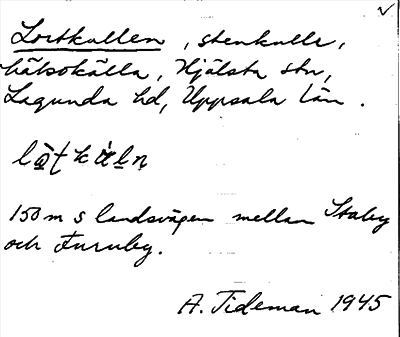 Lortkullen, stenkulle,
hälsokälla, Hjälsta sn,
Lagunda hd, Uppsala län.
150 m s landsvägen mellan Staby
och Furuby.
A. Tideman 1945